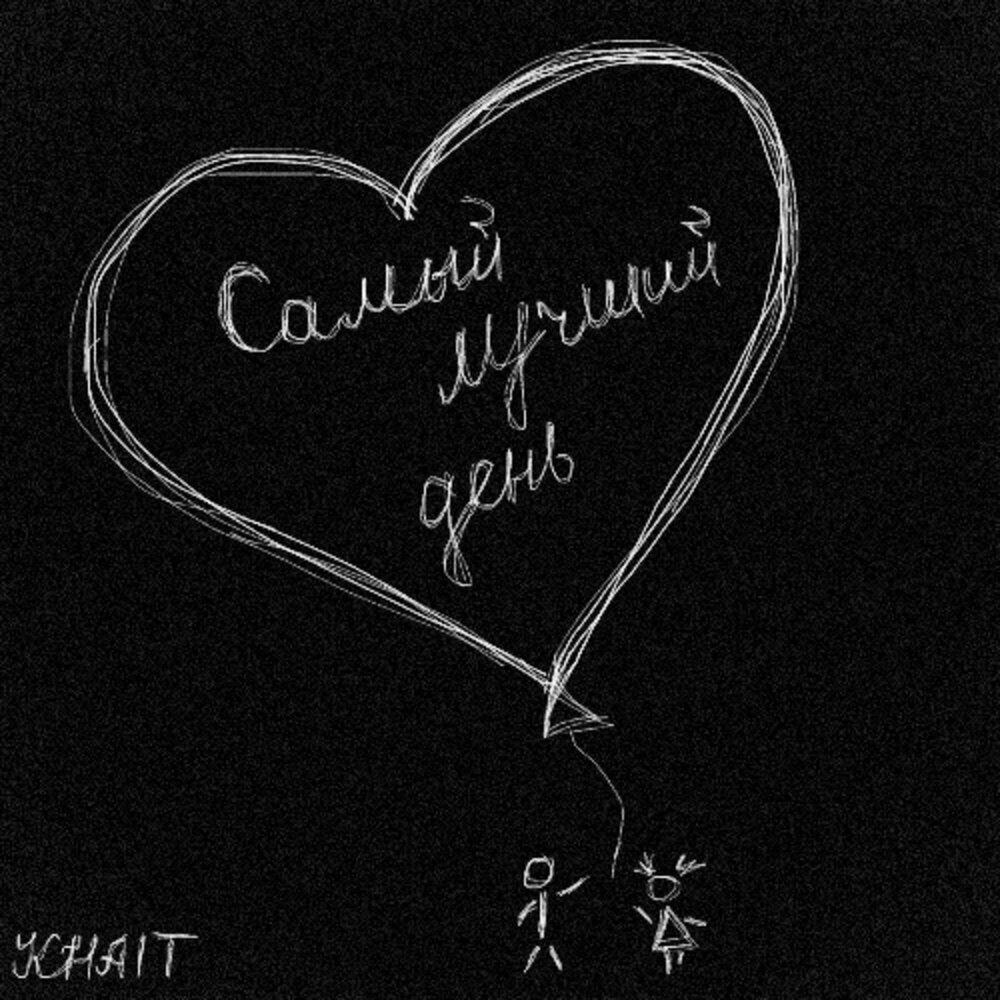 Самый
лучший
день
KHAIT